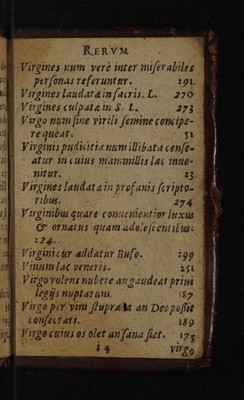 RERVM
Virgines num verè inter miserabiles
personas referuntur. 191
Virgines laudatæ in sacris. L. 270
Virgines culpatæ in S. L. 273
Virgo num sine virili semine concipe-
re queat. 51
Virginis pudicitia num illibata cense-
atur in cuius mammillis lac inue-
nitur. 23
Virgines laudatæ in profanis scripto-
ribus. 274
Virginibus quare conuenientior luxus
& ornatus quam adolescentibus.
224.
Virgini cur addatur Bufo. 299
Vinum lac veneris. 251
Virgo volens nubere an gaudeat priui
legijs nuptarum. 187
Virgo per vim stuprata an Deo possit
consecrari. 189
Virgo cuius os olet an sana siet. 175
i 4 virgo